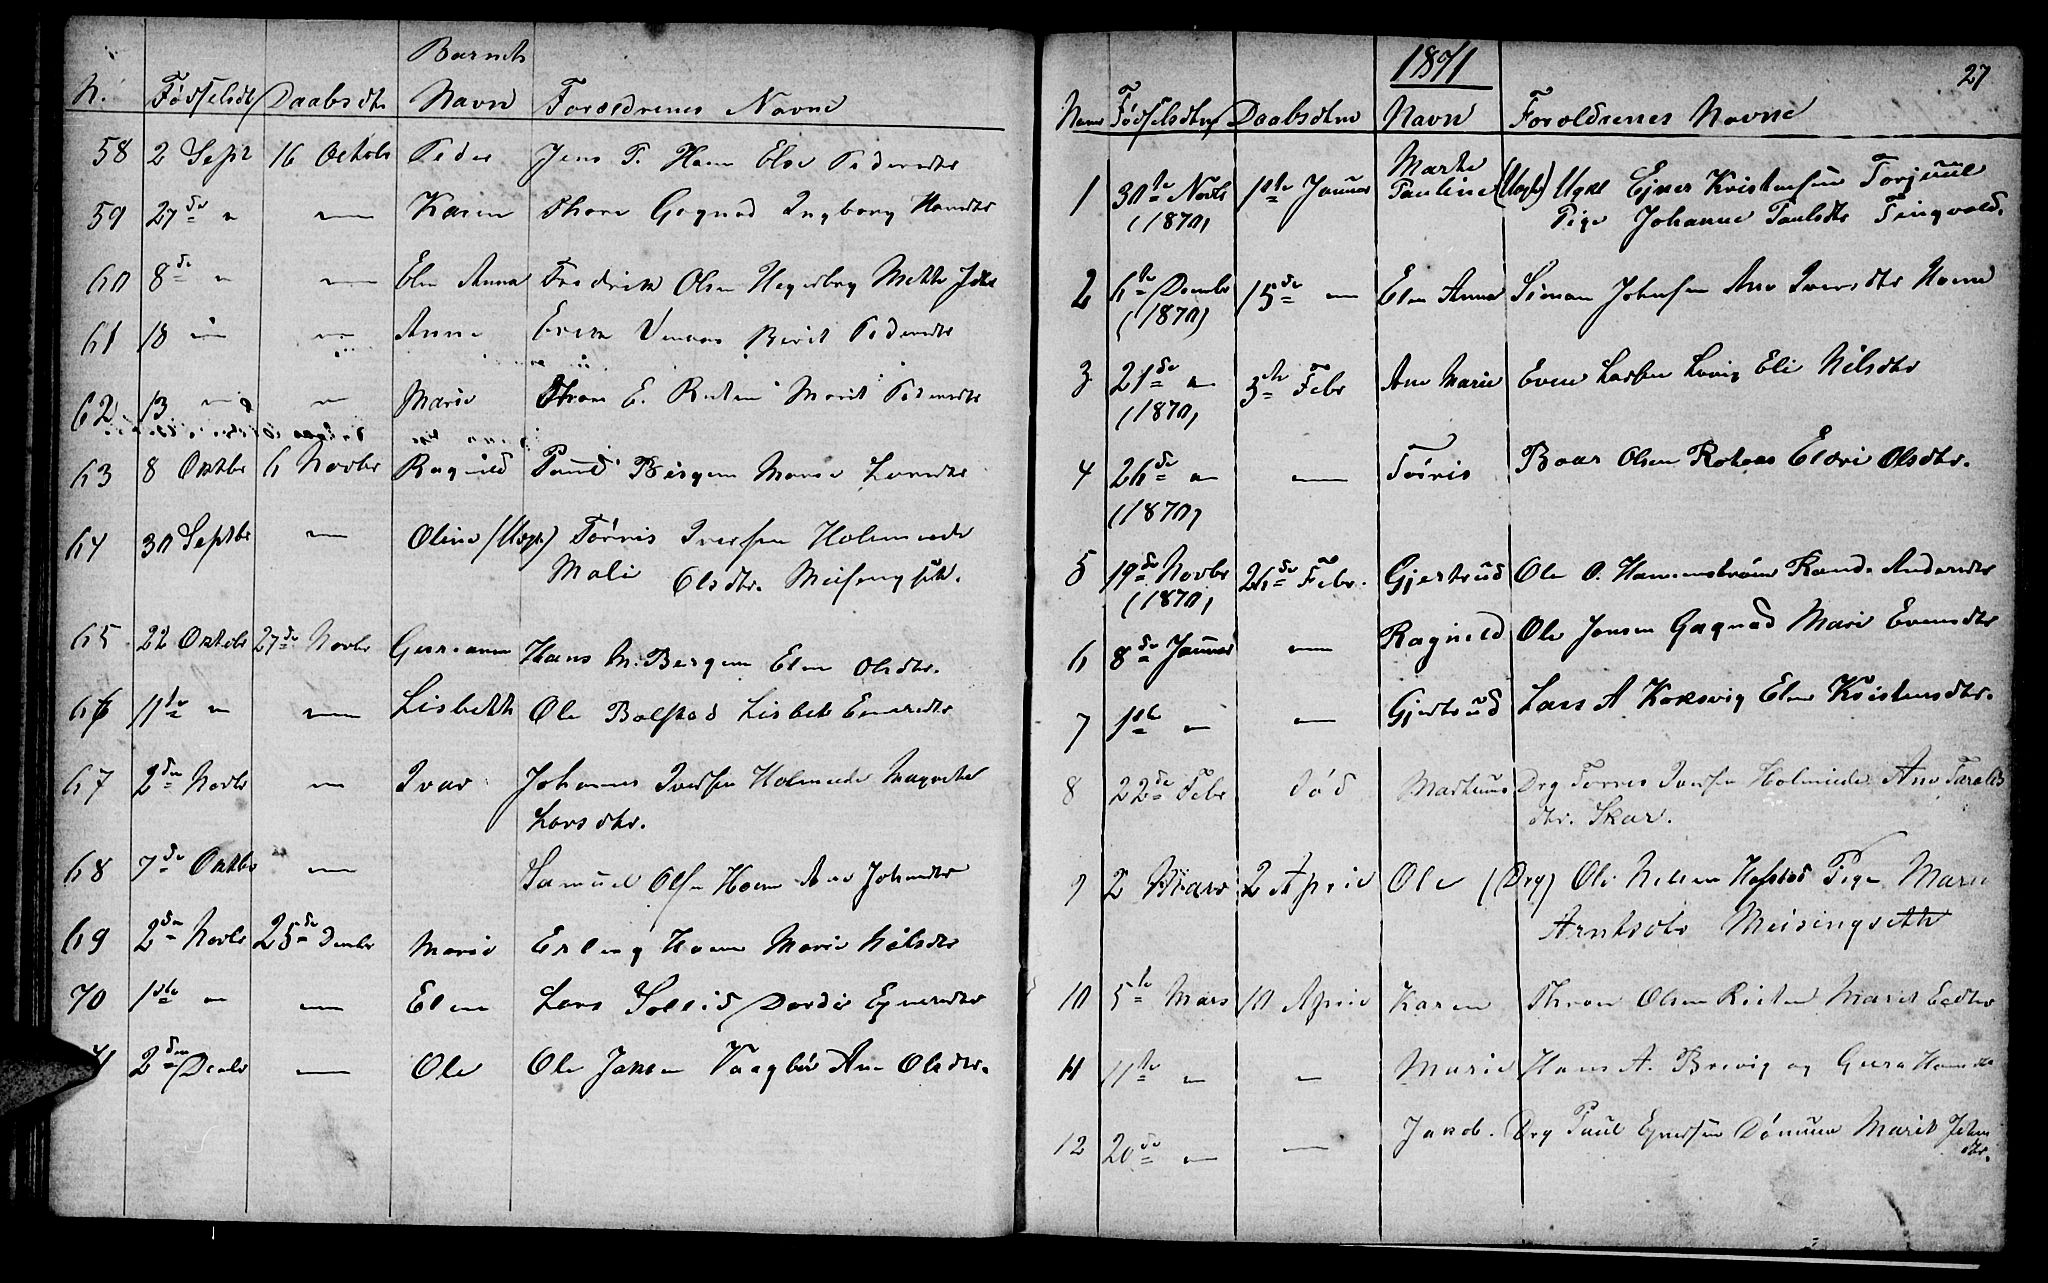 Barnets
N. Fødselsdt Daabsdt Navn Forældrenes Navne
58 2 Septr 16 Octobr Peder Jens P. Hoem Else Pedersdtr
59 27de " — Karen Thore Gagnad Ingborg Hansdtr
60 8de " — Elen Anna Fredrik Olsen Hegerberg Mette
61 18 — — Anne Even Berit Pedersdtr
62 13 — — Marie Thore E. Marit Pedersdtr
63 8 Oktbr 6 Novbr Ragnild Paul Bergem Larsdtr
64 30 Septbr — Oline (Uægt) Tørris Iversen Holmeide
Mali Olsdtr.
65 22 Oktobr 27de Novbr Hans M. Bergem Elen Olsdtr.
66 11te " — Lisbeth Ole Bolstad Lisbet
67 2den Novbr — Ivar Johannes Iversen Holmeide
Larsdtr.
68 7de Oktbr — Samuel Olsen Hoem Ane Johnsdtr
69 2den Novbr 25de Decmbr Marie Erling Hoem Marie Nilsdtr
70 1ste " — Elen Lars Sollid Dordi
71 2den Decbr — Ole Ole Vaagbø Ane Olsdtr.
1871
27
Navn Fødselsdtm Daabsdtm Navn Foroldrenes Navne
Marte
1 30te Novbr 1ste Januar Pauline (Uægt) Ugkl Ejner Kristensen Torjuul
(1870) Pige Johanne Paulsdtr Tingvold.
2 6te Decmbr 15de — Elen Anna Simon Johnsen Ane Iversdtr Hoem
(1870)
3 21de " 5te Febr Ane Marie Even Larsen Eli Nilsdtr
(1870)
4 26de " — Tørris Roar Olsen Olsdtr.
(1870)
5 19de Novbr 26de Febr. Gjertrud Ole O. Hammerstrøm Randi Andersdtr
(1870)
6 8de Januar — Ragnild Ole Jensen Gagnad Mari Evensdtr
7 1ste " — Gjertrud Lars A Koksvig Elen Kristensdtr.
8 22de Febr død Martinus Drg Tørris Iversen Holmeide Ane Tarals
dtr. Skar.
9 2 Mars 2 April Ole (Drg) Ole Nilsen Hofstad Pige Marie
Arntsdtr Meisingseth
10 5te Mars 10 April Karen Thron Olsen Marit
11 11te " — Marie Hans A. Brevig og Guru Hansdtr
12 20de " — Jakob. Drg Paul Ejnersen Dømmen Marit John
dtr.